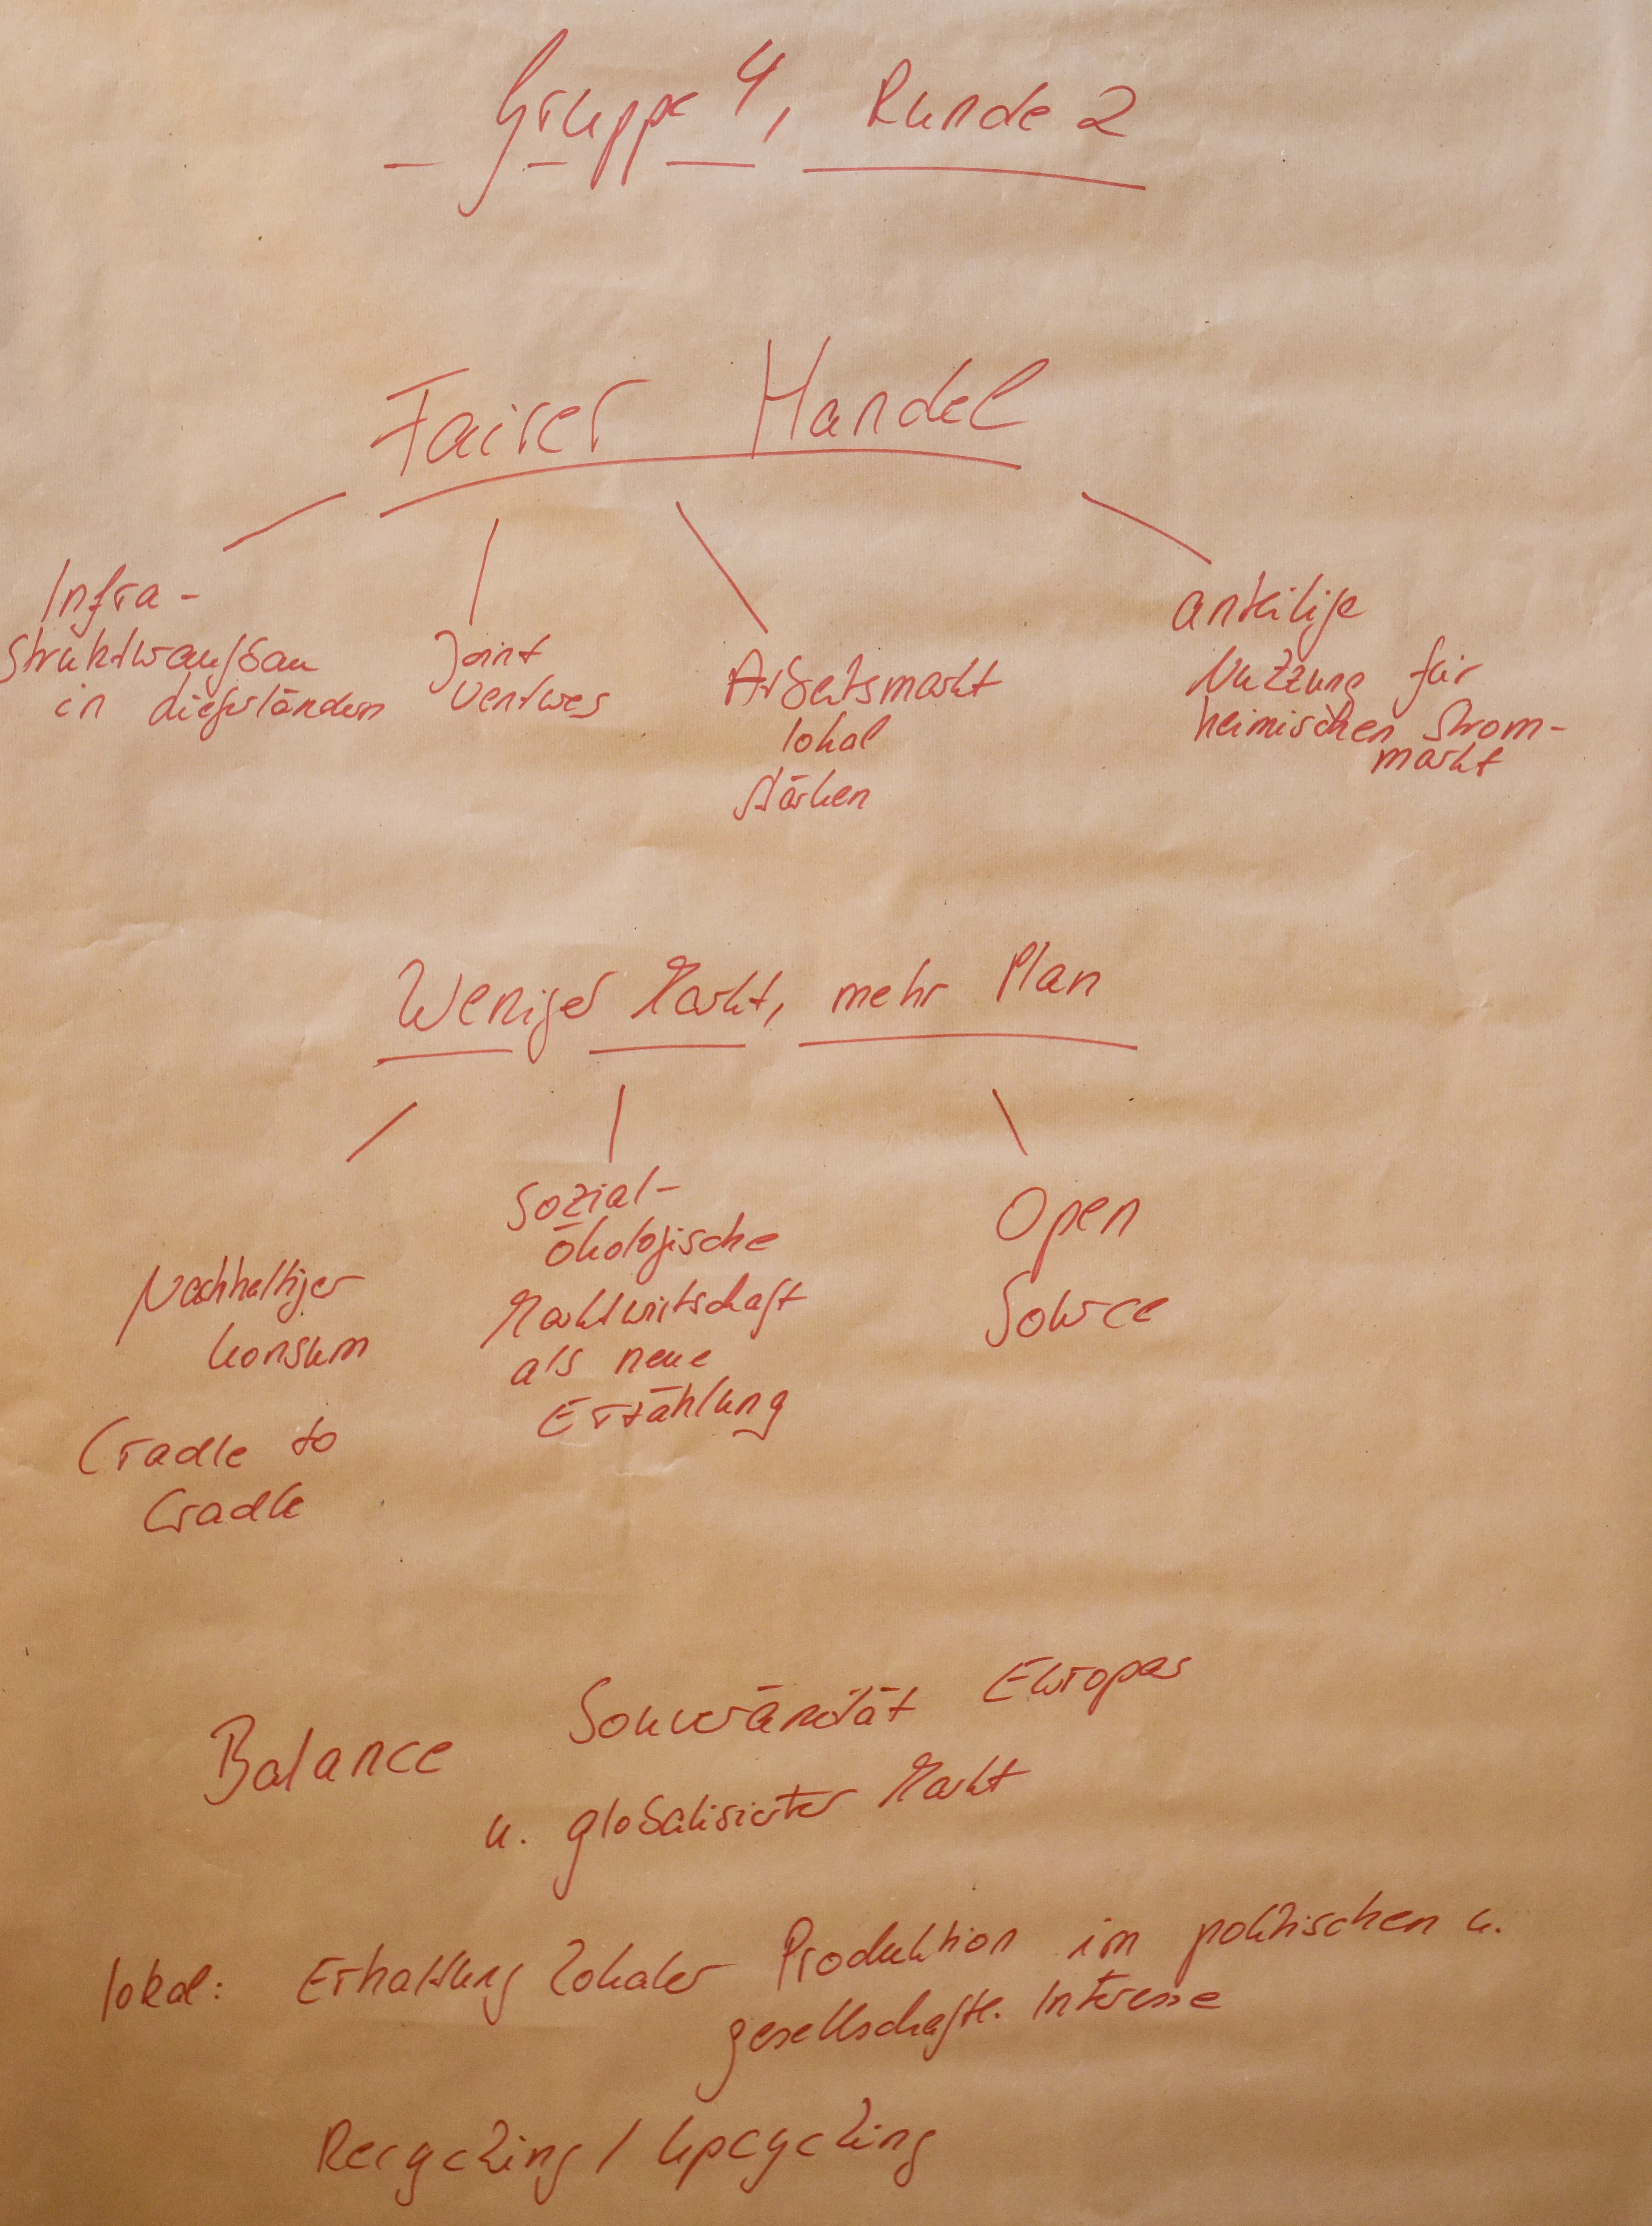 Gruppe 4, Runde 2
Fairer Handel
Infra-
strukturaufbau
in Lieferländern
Joint
Ventures
Arbeitsmarkt
lokal
stärken
anteilige
Nutzung für
heimischen Strom-
markt
Weniger Markt, mehr Plan
Nachhaltiger
Konsum
Cradle to
Cradle
Sozial-
ökologische
Marktwirtschaft
als neue
Erzählung
Open
Source
Balance Souveränität Europas
u. globalisierter Markt
lokal: Erhaltung lokaler Produktion im politischen u.
gesellschaftl. Interesse
Recycling / Upcycling